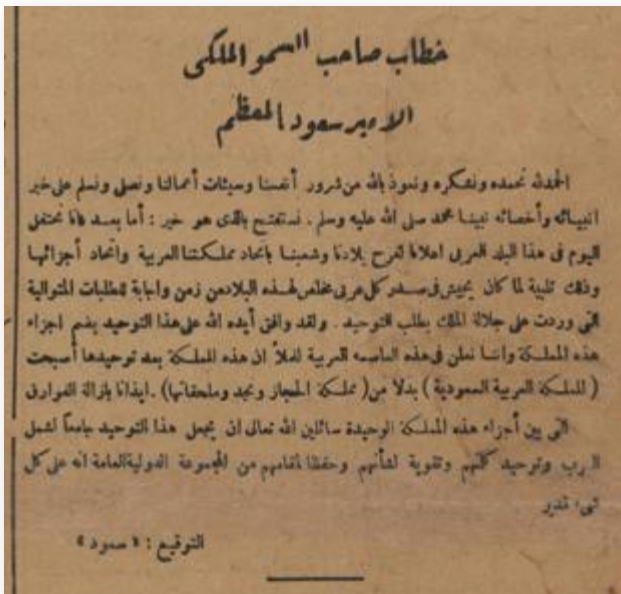 خطاب صاحب السمو الملكى
الامير سعود المعظم
الحمدلله نحمده ونشكره ونعوذ بالله من شرور أنفسنا وسيئات أعمالنا ونصلى ونسلم على خير
انبيائه وأخصائه نبينا محمد صلى الله عليه وسلم . نستفتح بالذى هو خير : أما بعد فانا نحتفل
اليوم فى هذا البلد العربى اعلانا لفرح بلادنا وشعبنا باتحاد مملكتنا العربية واتحاد أجزائها
وذلك تلبية لما كان يجيش فى صدر كل عربى مخلص لهذه البلاد من زمن واجابة للطلبات المتوالية
التى وردت على جلالة الملك بطلب التوحيد . ولقد وافق أيده الله على هذا التوحيد بضم اجزاء
هذه المملكة واننا نعلن فى هذه العاصمه العربية للملأ ان هذه المملكة بعد توحيدها أصبحت
( المملكة العربية السعودية ) بدلا من ( مملكة الحجاز ونجد وملحقاتها ) . ايذانا بازالة الفوارق
التى بين أجزاء هذه المملكة الوحيدة سائلين الله تعالى ان يجعل هذا التوحيد جامعاً لشمل
العرب وتوحيد كلمتهم وتقوية لشأنهم وحفظا لمقامهم من المجموعة الدولية العامة انه على كل
شىء قدير
التوقيع : « سعود »